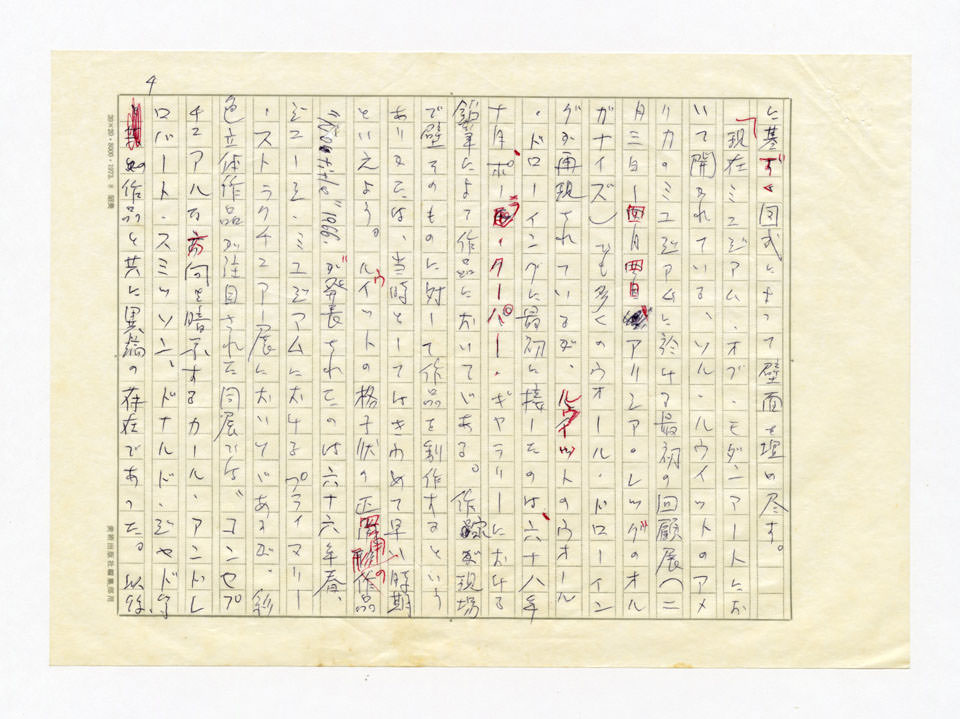 4
に基ずく図式によって壁面を埋め尽す。
現在ミュジアム・オブ・モダンアートにお
いて開かれている、ソル・ルウイットのアメ
リカのミュジアムに於ける最初の回顧展(二
月三日ー四月四日 アリシア・レッグのオル
ガナイズ)でも多くのウオール・ドローイン
グが再現されているが、ルウィットのウオール
・ドローイングに最初に接したのは、六十八年
十月ポーラ・クーパー・ギャラリーにおける
鉛筆によって作品においてである。作家が現場
で壁そのものに対して作品を制作するという
ありかたは、当時としてはきわめて早い時期
といえよう。ルウィットの格子状の正 の作品
"title" 1966. が発表されたのは六十六年春、
ジューイシ・ミュジアムにおける プライマリー
・ストラクチュアー展においてであるが、彩
色立体作品が注目された同展では、コンセプ
チュアルな方向を暗示するカール・アンドレ
ロバート・スミッソン、ドナルド・ジャド等
の作品と共に異端の存在であった。以後、
20×20